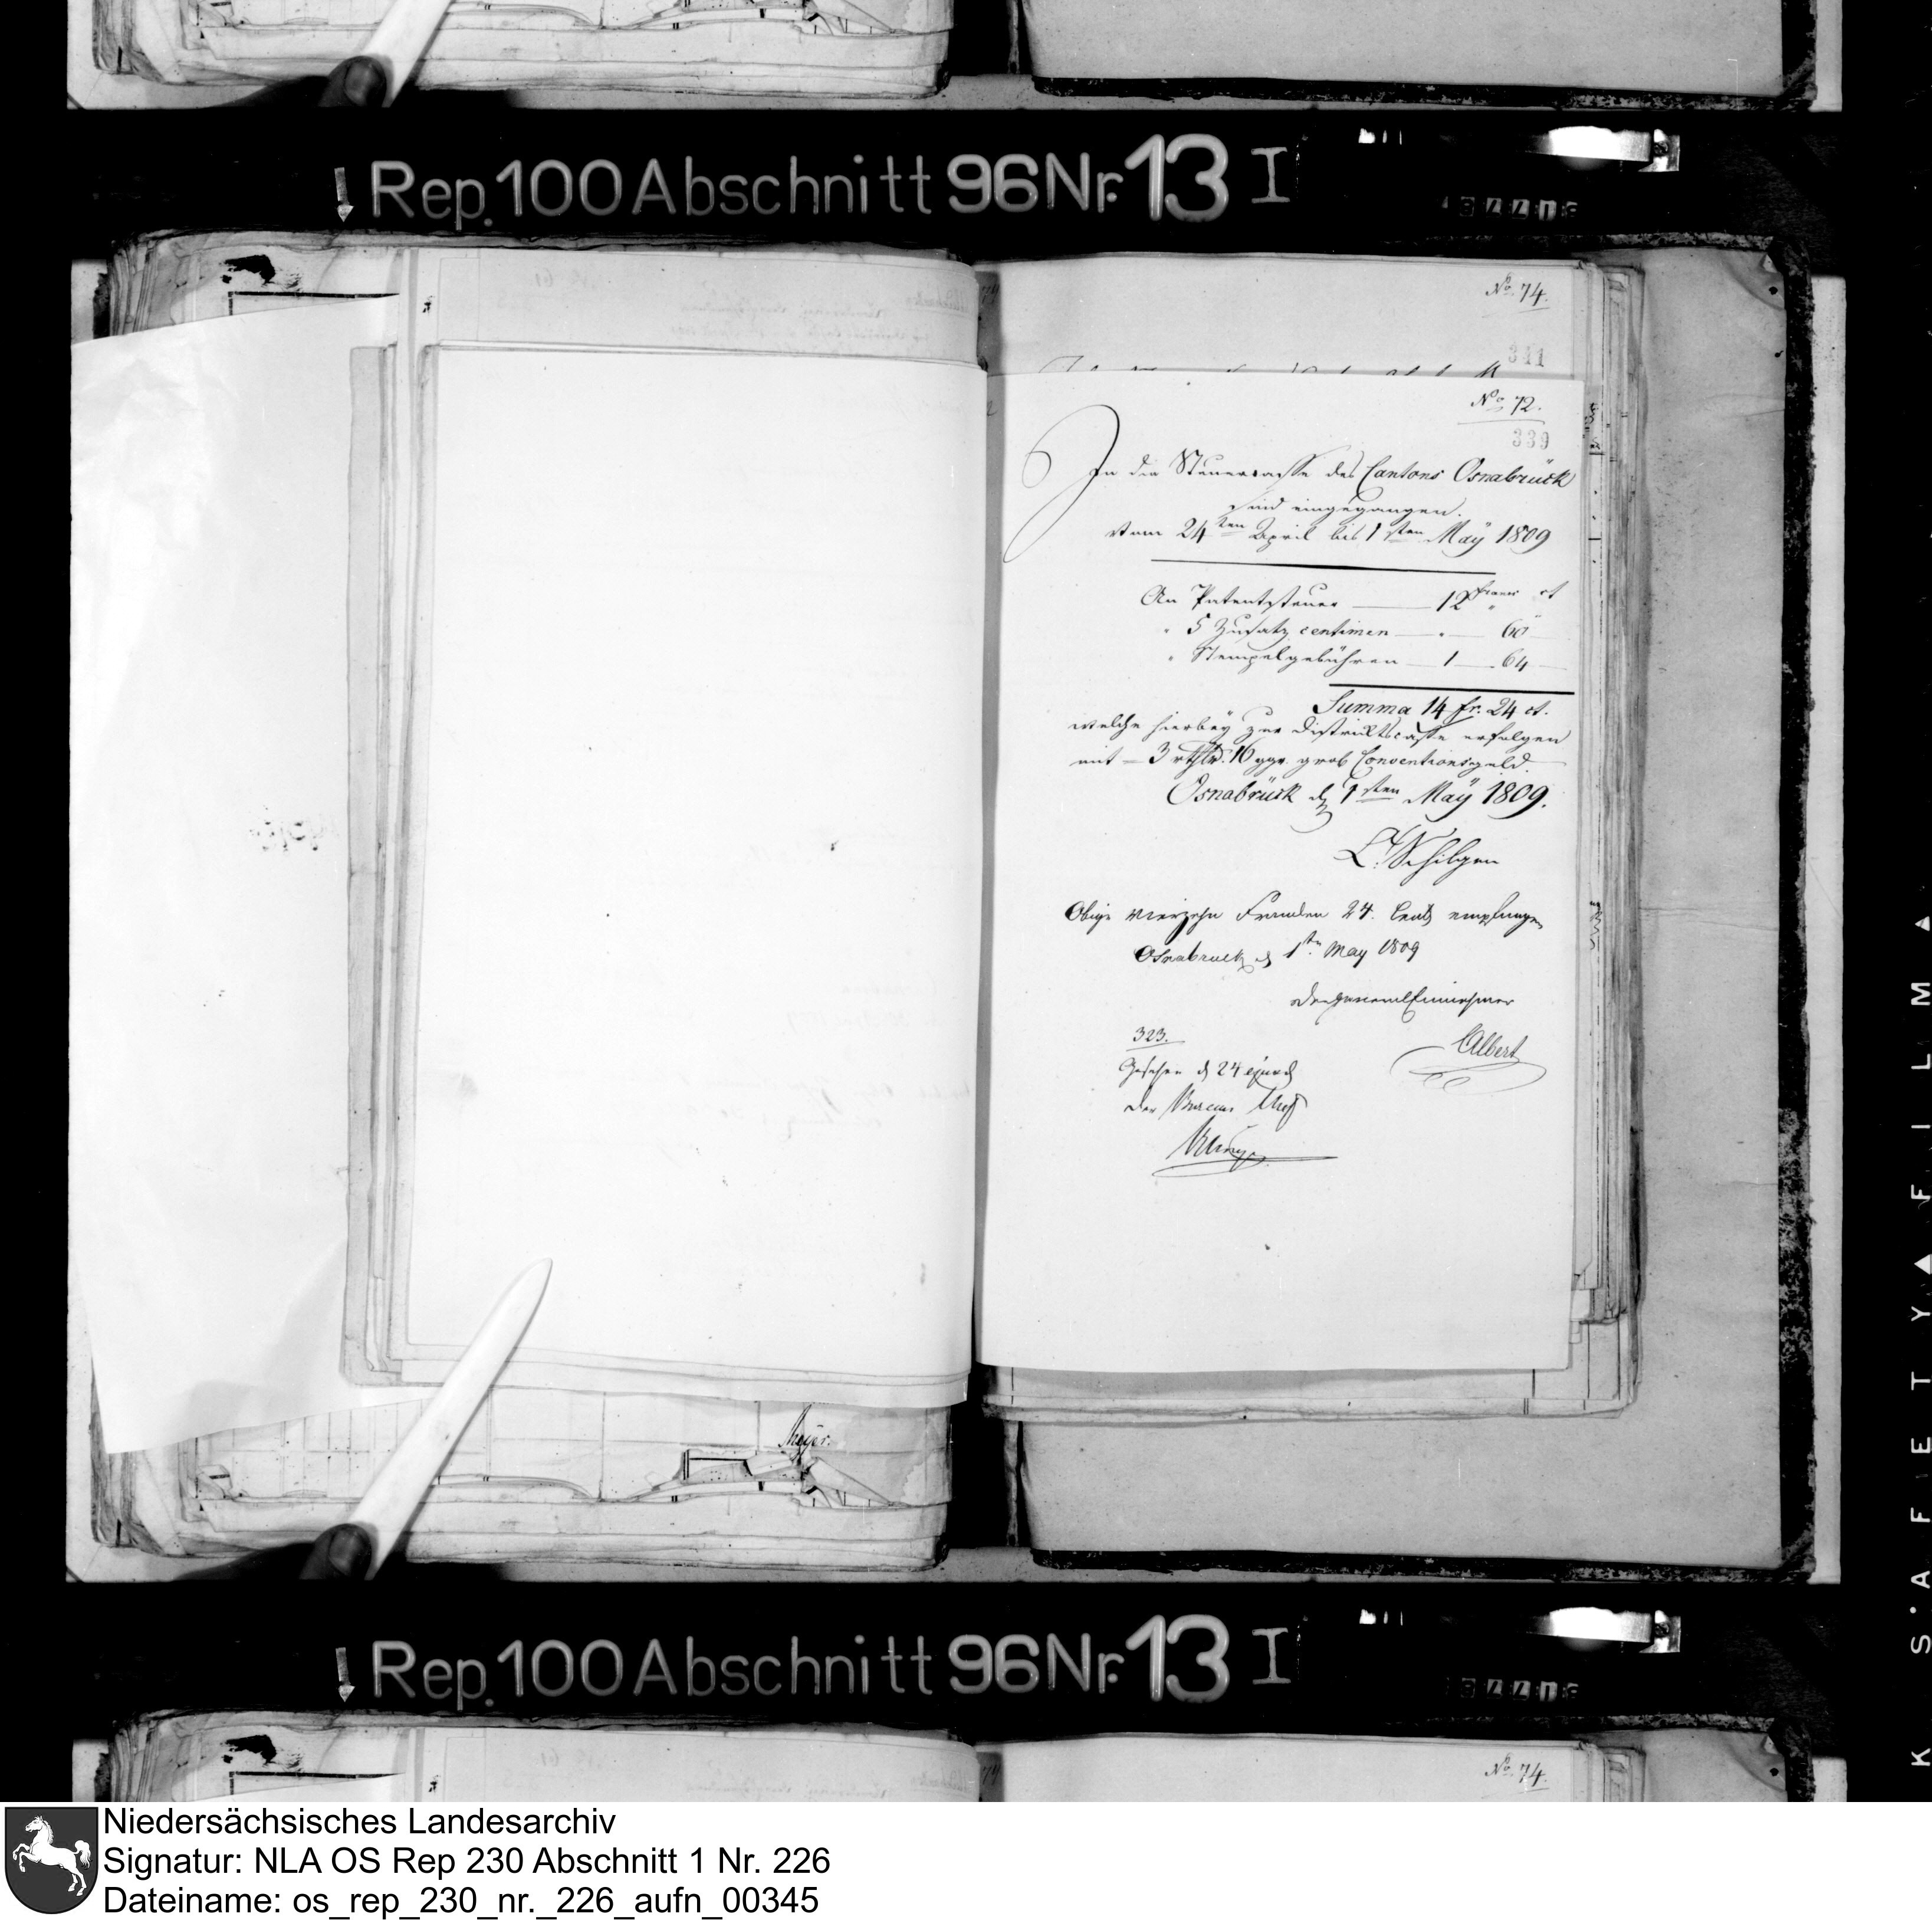 Rep. 100 Abschnitt 96 Nr. 13 I
No. 74.
341
No. 72.
339
In die Steuercasse des Cantons Osnabrück
sind eingegangen.
vom 24ten April bis 1sten Maÿ 1809
An Patentsteuer 12 francs " ct
" 5 Zusatz centimen " 60
" Stempelgebühren 1 64
Summa 14 fr. 24 ct.
welche hierbeÿ zur Districtscasse erfolgen
mit 3 rthlr. 16 ggr. grob Conventionsgeld.
Osnabrück d 1sten Maÿ 1809.
Schilgen
Obige vierzehn Franken 24. Cents empfangen
Osnabruck d 1ten May 1809
der GeneralEinnehmer
Albert
323.
Gesehen d 24 ejusd
der Bureau Chef
Meyer.
Rep. 100 Abschnitt 96 Nr. 13 I
No. 74.
K S·A F E T Y ▲ F I L M ▲
Niedersächsisches Landesarchiv
Signatur: NLA OS Rep 230 Abschnitt 1 Nr. 226
Dateiname: os_rep_230_nr._226_aufn_00345